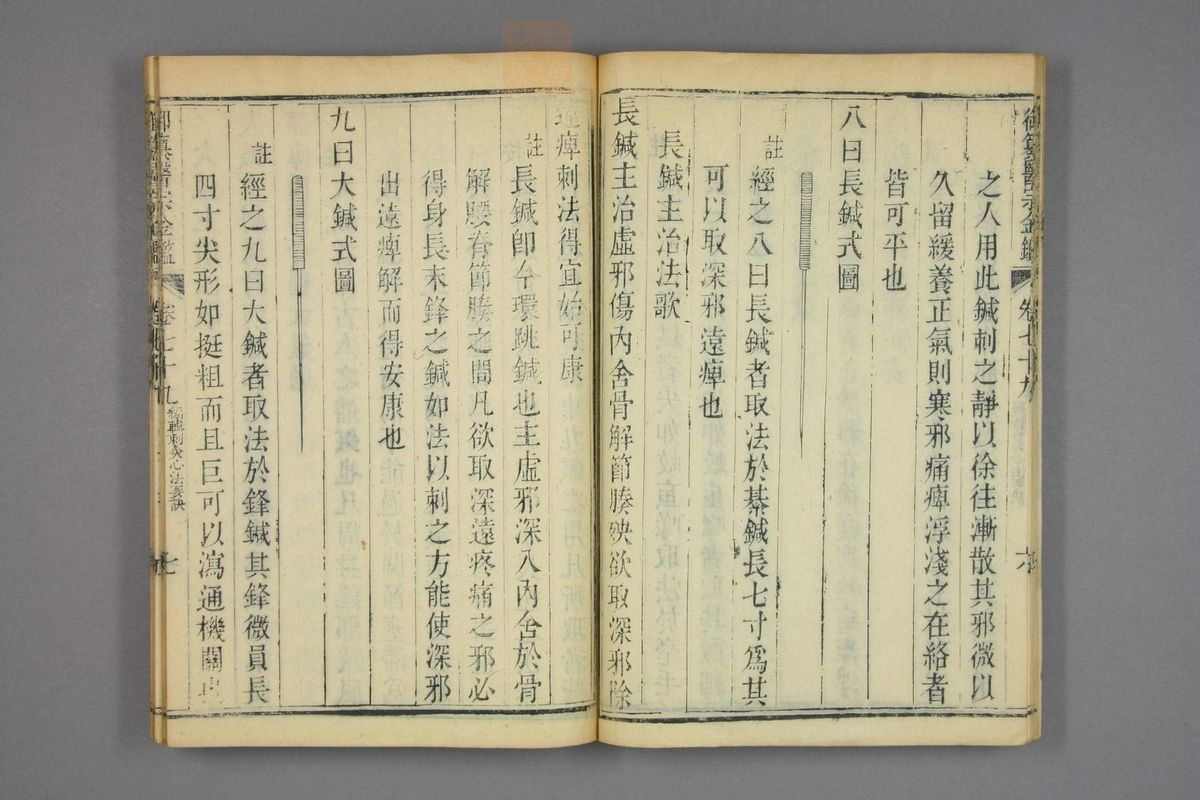 御纂醫宗金鑑 卷七十九 六
之人用此鍼刺之靜以徐往漸散其邪微以
久留緩養正氣則寒邪痛痺浮淺之在絡者
皆可平也
八曰長鍼式圖
註經之八曰長鍼者取法於綦鍼長七寸爲其
可以取深邪遠痺也
長鍼主治法歌
長鍼主治虛邪傷內舍骨解節腠殃欲取深邪除
遠痺刺法得宜始可康
註長鍼卽今環跳鍼也主虛邪深入內舍於骨
解腰脊節腠之間凡欲取深遠疼痛之邪必
得身長末鋒之鍼如法以刺之方能使深邪
出遠痺解而得安康也
九曰大鍼式圖
註經之九曰大鍼者取法於鋒鍼其鋒微員長
四寸尖形如挺粗而且巨可以瀉通機關也
御纂醫宗金鑑 卷七十九 刺灸心法要訣 七